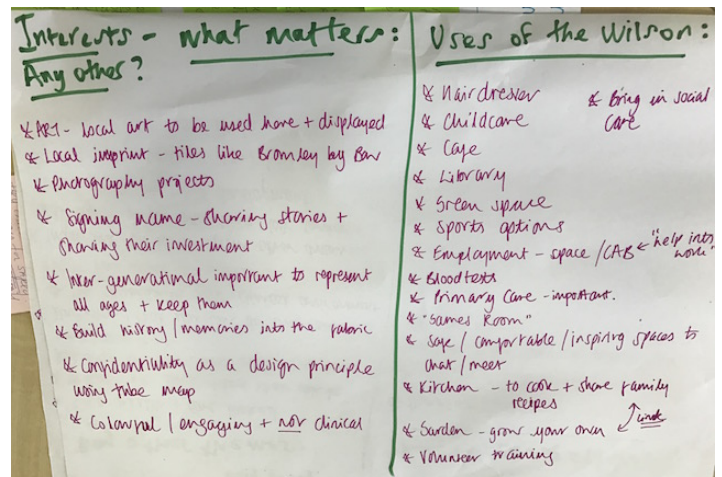 Interests - what matters:
Any other?
* ART - local art to be used here + displayed
* Local imprint - tiles like Bromley by Bow
* Photography projects
* Signing name - sharing stories +
sharing their investment
* Inter-generational important to represent
all ages + keep them
* Build history / memories into the fabric
* Confidentiality as a design principle
using tube map
* Colourful / engaging + not clinical
Uses of the Wilson:
* Hairdresser
* Bring in social
care
* Childcare
* Cafe
* Library
* Green space
* Sports options
* Employment - space / CAB ← "help into
work"
* Blood tests
* Primary Care - important.
* "Games Room"
* Safe / comfortable / inspiring spaces to
chat / meet
* Kitchen - to cook + share family
recipes
Link
* Garden - grow your own
* Volunteer training